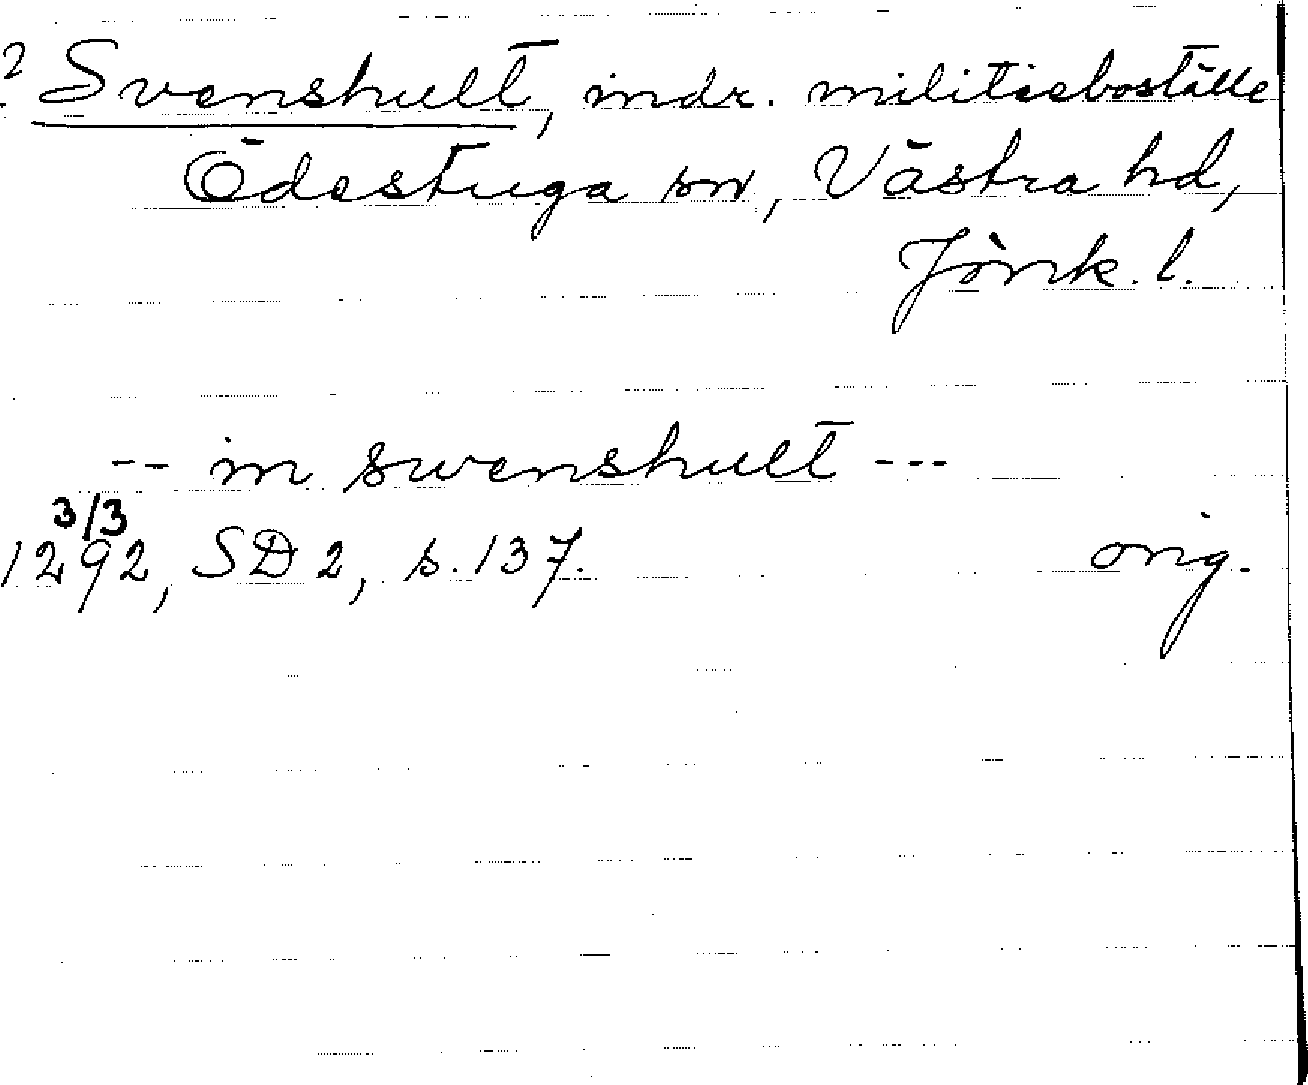 ? Svenshult, indr. militieboställe
Ödestuga sn, Västra hd,
Jönk. l.
-- in swenshult ---
3/3
1292, SD 2, s. 137. orig.